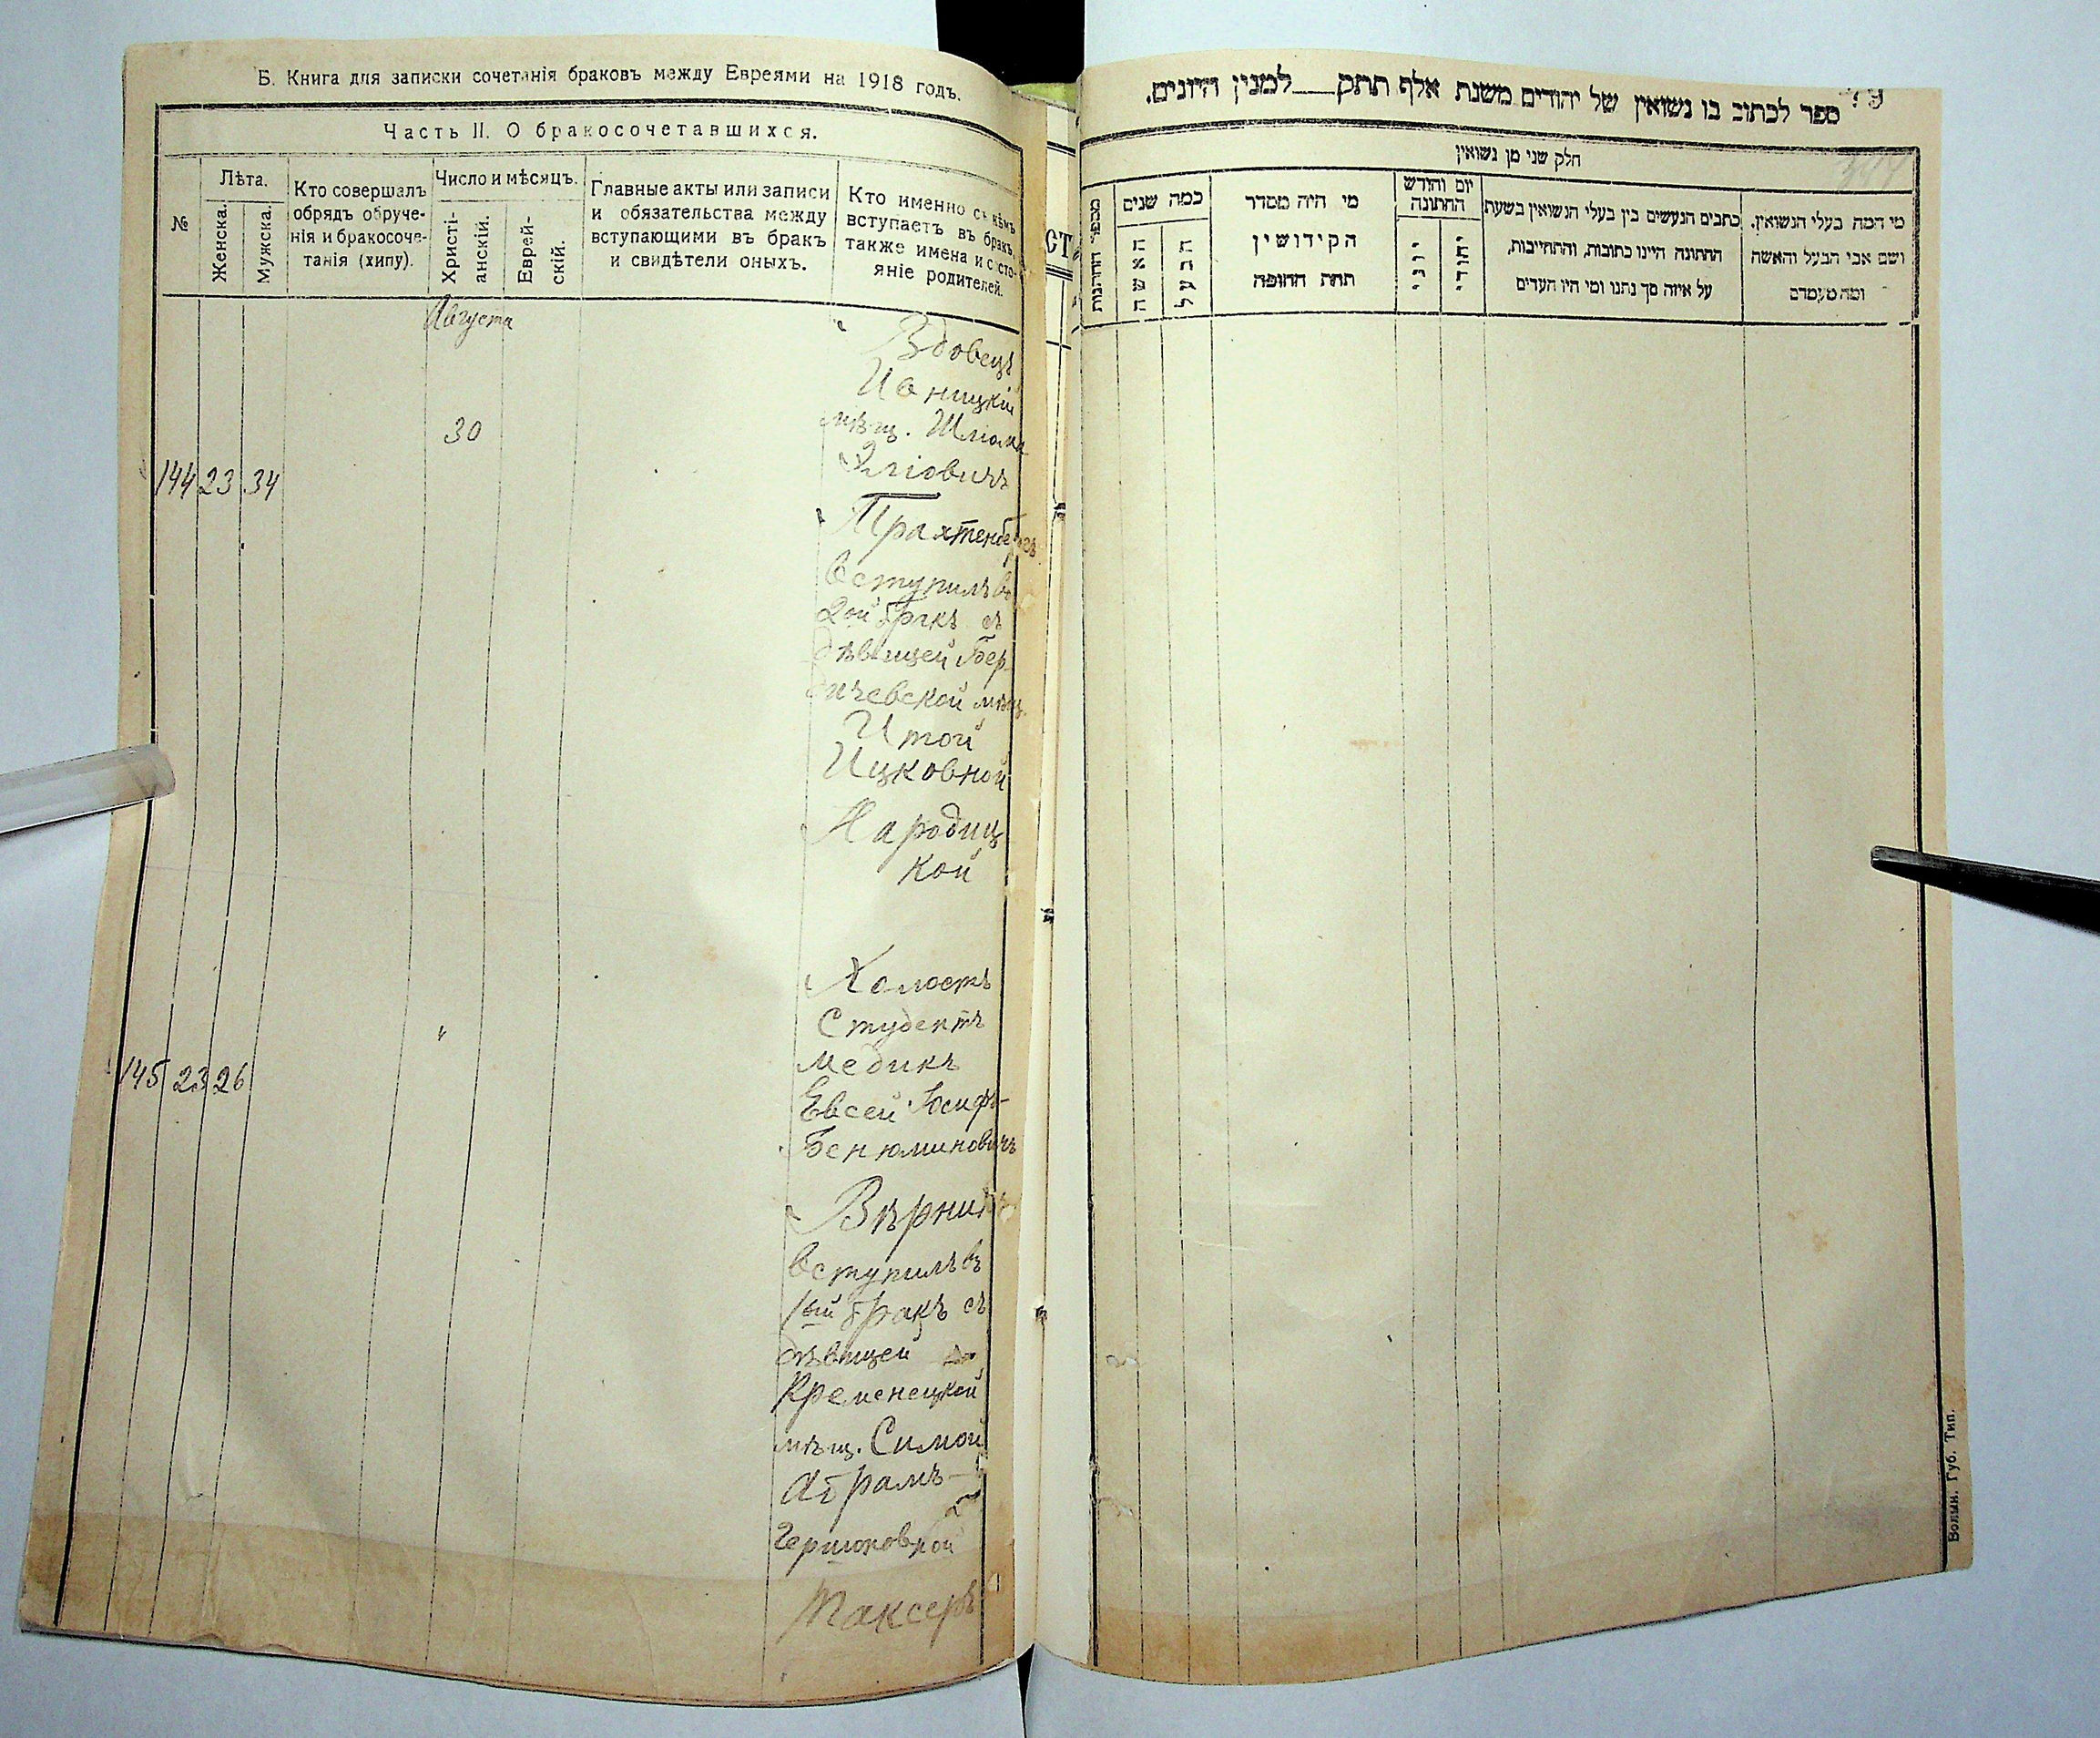 Б. Книга для записки сочетанія браковъ между Евреями на 1918 годъ.
Часть II. О бракосочетавшихся.
№
Лѣта.
Женска.
Мужска.
Кто совершалъ
обрядъ обруче-
нія и бракосоче-
танія (хипу).
Число и мѣсяцъ.
Христі-
анскій.
Еврей-
скій.
Главные акты или записи
и обязательства между
вступающими въ бракъ
и свидѣтели оныхъ.
Кто именно съ кѣмъ
вступаетъ въ бракъ,
также имена и состо-
яніе родителей.
Августа
144 23 34
30
Вдовецъ
Ивницкій
мѣщ. Шлома
Эліовичъ
Трахтенбергъ
вступилъ во
2ой бракъ съ
дѣвицей Бер
дичевской мѣщ.
Итой
Ицковной
Народиц
кой
145 23 26
"
Холостъ
Студентъ
медикъ
Евсей Іосифъ-
Бенюминовичъ
Вѣрникъ
вступилъ въ
1ый бракъ съ
дѣвицей
Кременецкой
мѣщ. Симой
Абрамъ-
Гершковной
Таксеръ
ספר לכתוב בו נשואין של יהודים משנת אלף תתק___למנין היונים.
חלק שני מן נשואין
מספר החתונות
כמה שנים
האשה
הבעל
מי היה מסדר
הקידושין
תחת החופה
יום וחודש
החתונה
יוני
יהודי
כתבים הנעשים בין בעלי הנשואין בשעת
החתונה היינו כתובות, והתחייבות,
על איזה סך נתנו ומי היו העדים
מי המה בעלי הנשואין,
ושם אבי הבעל והאשה
ומה מעמדם
Волын. Губ. Тип.